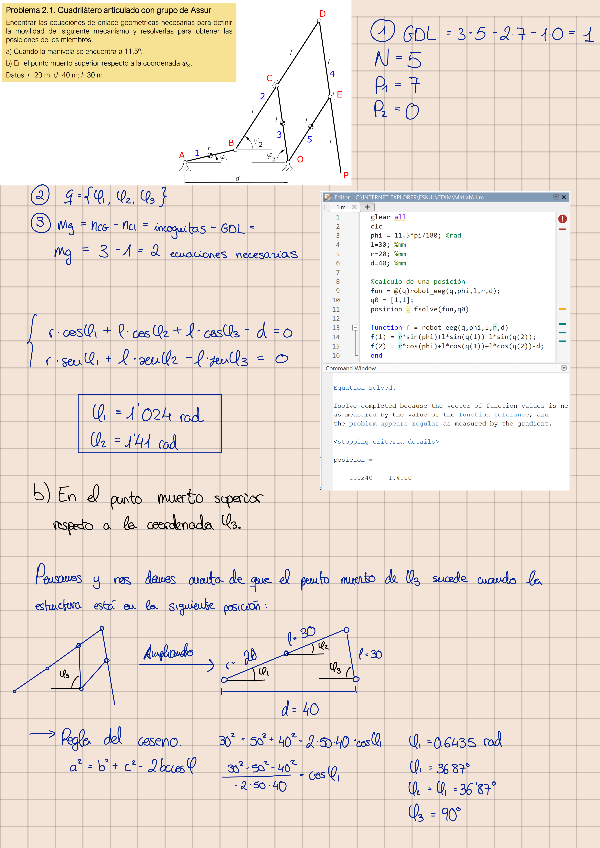 Problema 2.1. Cuadrilátero articulado con grupo de Assur
Encontrar las ecuaciones de enlace geométricas necesarias para definir
la movilidad del siguiente mecanismo y resolverlas para obtener las
posiciones de los miembros:
a) Cuando la manivela se encuentra a 11,5º.
b) En el punto muerto superior respecto a la coordenada φ3.
Datos: r 20 m; d 40 m; l 30 m
D
C
4
2
E
B
3
5
A
1
O
P
d
① GDL = 3·5 - 2·7 - 1·0 = 1
N = 5
P1 = 7
P2 = 0
② q = {φ1, φ2, φ3}
③ mg = nCG - nCI = incognitas - GDL =
mg = 3 - 1 = 2 ecuaciones necesarias
r·cosφ1 + l·cosφ2 + l·cosφ3 - d = 0
r·senφ1 + l·senφ2 - l·senφ3 = 0
φ1 = 1'024 rad
φ2 = 1'41 rad
1 clear all
2 clc
3 phi = 11.5*pi/180; %rad
4 l=30; %mm
5 r=20; %mm
6 d=40; %mm
7
8 %calculo de una posición
9 fun = @(q)robot_eeg(q,phi,l,r,d);
10 q0 = [1,1];
11 posicion = fsolve(fun,q0)
12
13 function f = robot_eeg(q,phi,l,r,d)
14 f(1) = r*sin(phi)+l*sin(q(1))-l*sin(q(2));
15 f(2) = r*cos(phi)+l*cos(q(1))+l*cos(q(2))-d;
16 end
Command Window
Equation solved.
fsolve completed because the vector of function values is ne
as measured by the value of the function tolerance, and
the problem appears regular as measured by the gradient.
<stopping criteria details>
posicion =
b) En el punto muerto superior
respecto a la coordenada φ3.
Pensamos y nos damos cuenta de que el punto muerto de φ3 sucede cuando la
estructura está en la siguiente posición:
φ3
Ampliando
r = 20
l = 30
φ2
φ1
φ3
l = 30
d = 40
→ Regla del coseno.
a² = b² + c² - 2bccosφ
30² = 50² + 40² - 2·50·40·cosφ1
30² - 50² - 40²
-2·50·40
= cosφ1
φ1 = 0.6435 rad
φ1 = 36'87°
φ2 = φ1 = 36'87°
φ3 = 90°